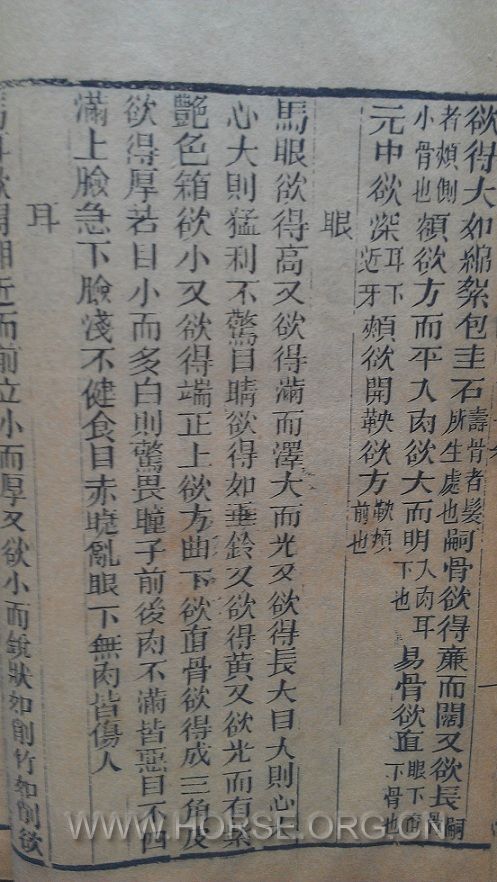 欲得大如綿絮包圭石壽骨者髮所生處也嗣骨欲得廉而闊又欲長嗣骨
者頰側小骨也額欲方而平入肉欲大而明入肉耳下也易骨欲直眼下直下骨也
元中欲深耳下近牙頰欲開鞅欲方鞅頰前也
眼
馬眼欲得高又欲得滿而澤大而光又欲得長大目大則心
心大則猛利不驚目睛欲得如垂鈴又欲得黃又欲光而有紫
艷色箱欲小又欲得端正上欲方曲下欲直骨欲得成三角皮
欲得厚若目小而多白則驚畏瞳子前後肉不滿皆惡目不四
滿上瞼急下瞼淺不健食目赤曉亂眼下無肉皆傷人
耳
馬耳欲得相近而前立小而厚又欲小而銳狀如削竹如削欲
WWW.HORSE.ORG.CN